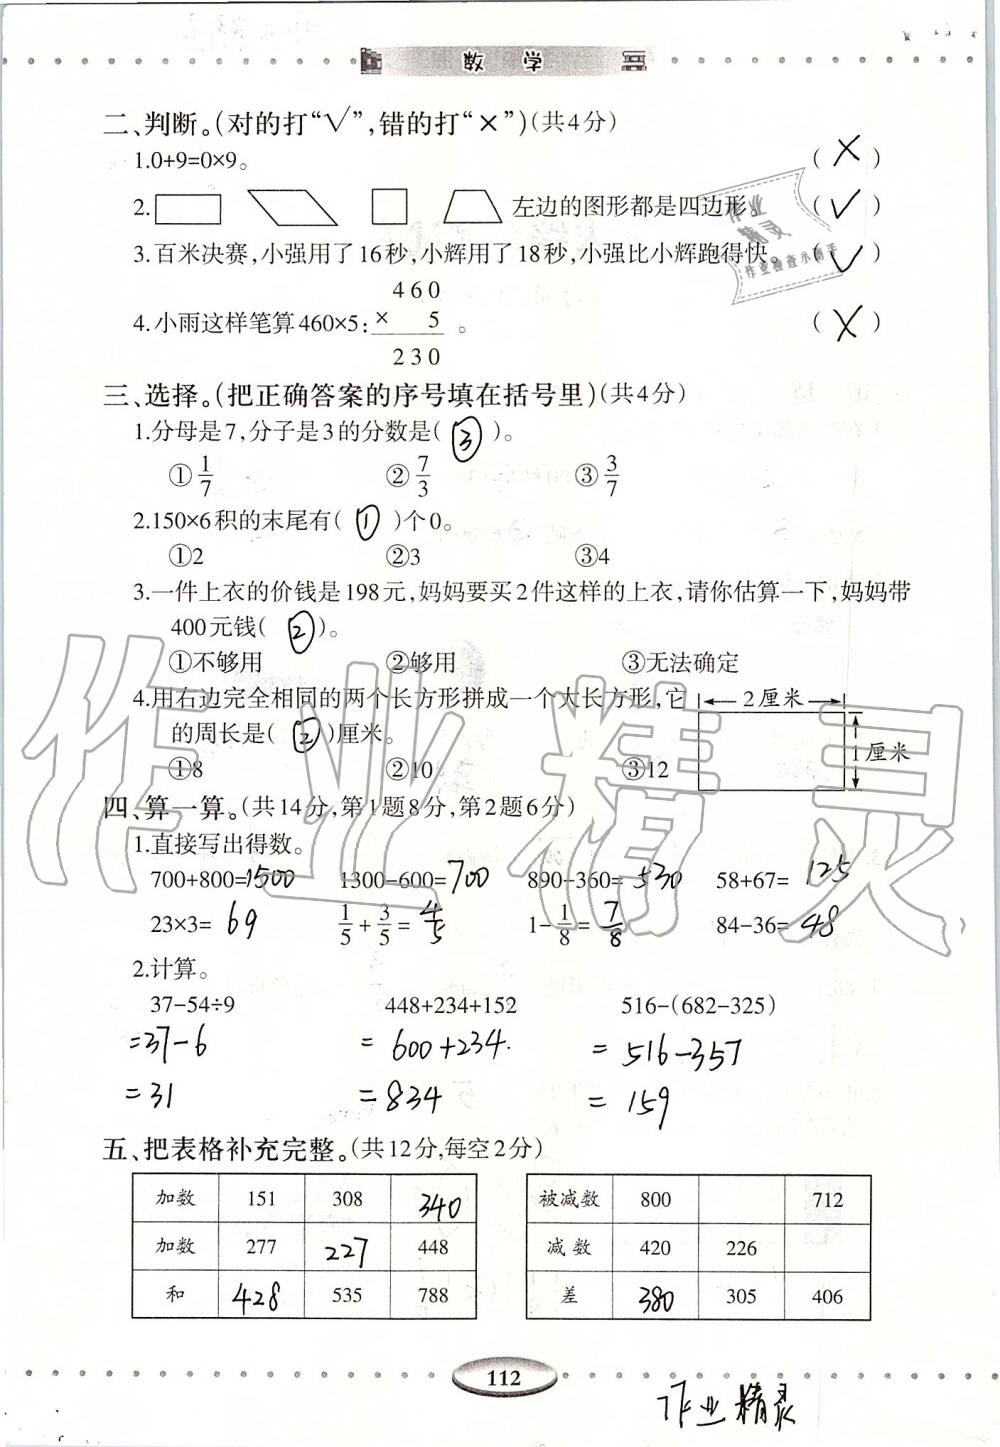 数 学
二、判断。(对的打“√”,错的打“×”)(共4分)
1.0+9=0×9。 ( × )
2. 左边的图形都是四边形。 ( √ )
3.百米决赛,小强用了16秒,小辉用了18秒,小强比小辉跑得快。 ( √ )
460
4.小雨这样笔算460×5: × 5 。 ( × )
230
三、选择。(把正确答案的序号填在括号里)(共4分)
1.分母是7,分子是3的分数是( ③ )。
①1/7 ②7/3 ③3/7
2.150×6积的末尾有( ① )个0。
①2 ②3 ③4
3.一件上衣的价钱是198元,妈妈要买2件这样的上衣,请你估算一下,妈妈带
400元钱( ② )。
①不够用 ②够用 ③无法确定
4.用右边完全相同的两个长方形拼成一个大长方形,它
的周长是( ② )厘米。
①8 ②10 ③12
2厘米
1厘米
四、算一算。(共14分,第1题8分,第2题6分)
1.直接写出得数。
700+800=1500 1300-600=700 890-360=530 58+67=125
23×3=69 1/5+3/5=4/5 1-1/8=7/8 84-36=48
2.计算。
37-54÷9 448+234+152 516-(682-325)
=37-6 =600+234 =516-357
=31 =834 =159
五、把表格补充完整。(共12分,每空2分)
加数 151 308 340
加数 277 227 448
和 428 535 788
被减数 800 712
减数 420 226
差 380 305 406
112
作业精灵
作业精灵
作业
精灵
作业检查小助手